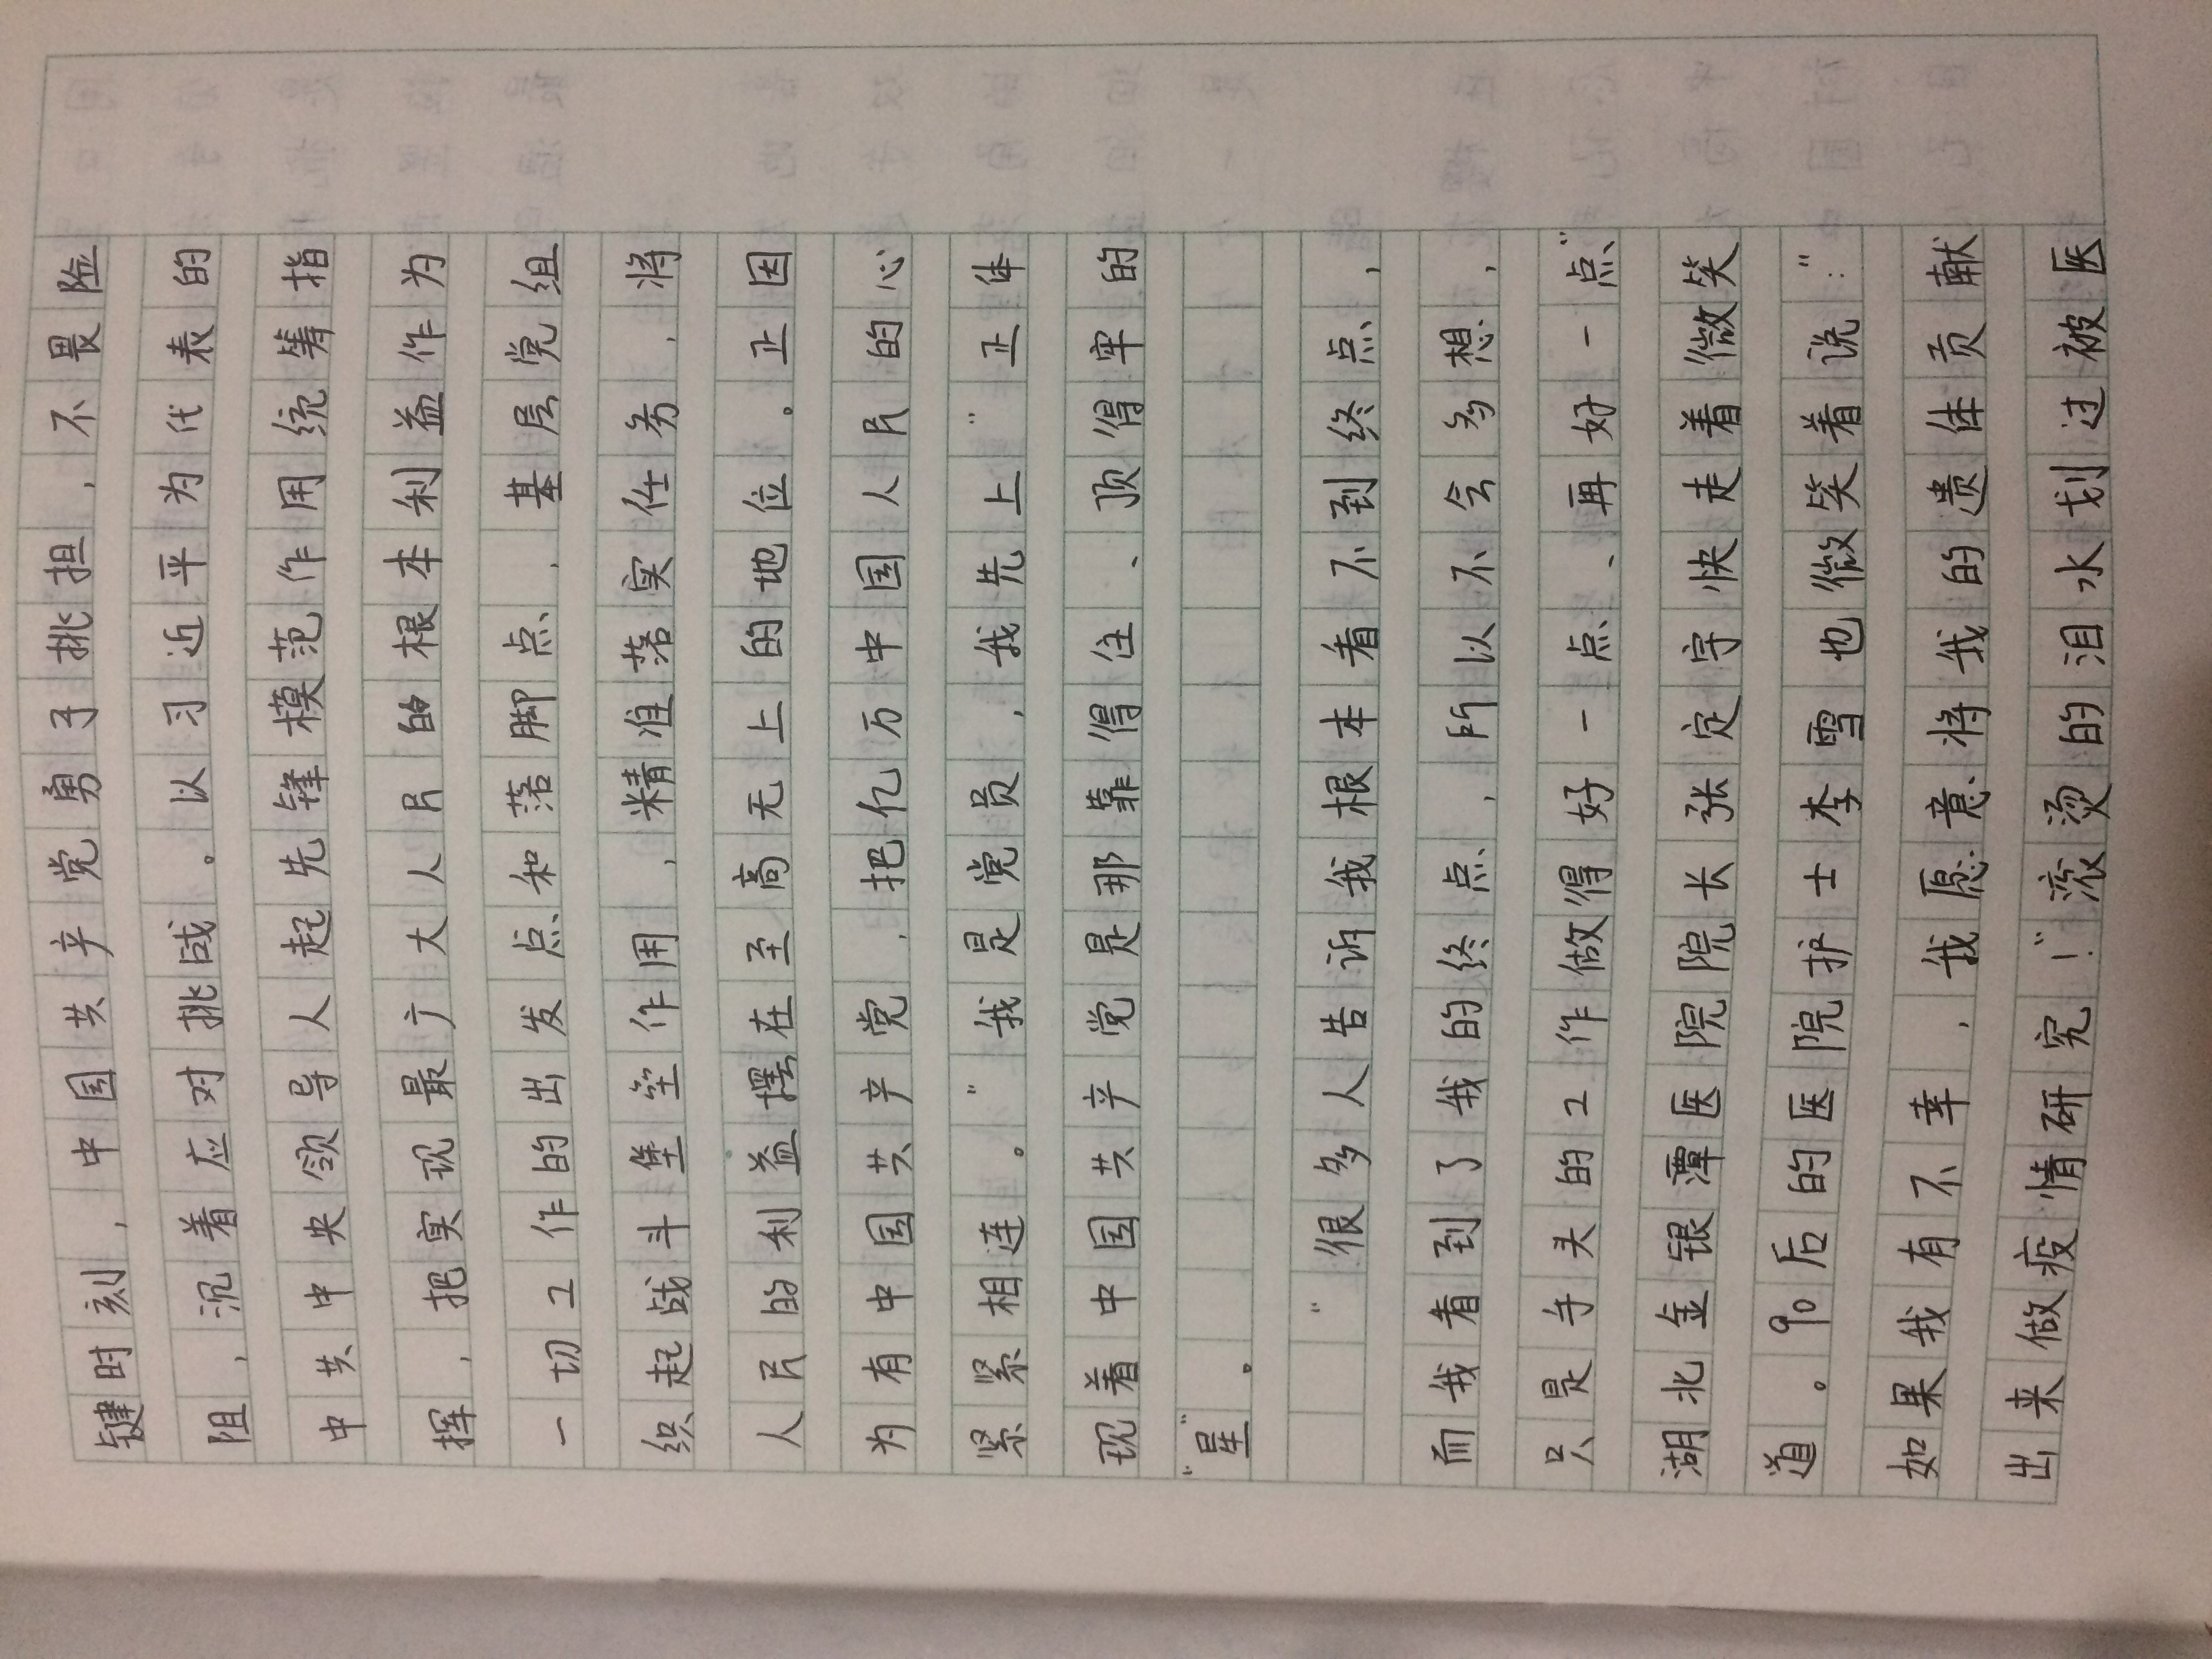 键时刻，中国共产党勇于挑担，不畏险
阻，沉着应对挑战。以习近平为代表的
中共中央领导人起先锋模范作用统筹指
挥，把实现最广大人民的根本利益作为
一切工作的出发点和落脚点，基层党组
织起战斗堡垒作用，精准落实任务，将
人民的利益摆在至高无上的地位。正因
为有中国共产党，把亿万中国人民的心
紧紧相连。"我是党员，我先上"正体
现着中国共产党是那靠得住、顶得牢的
"星"。
"很多人告诉我根本看不到终点，
而我看到了我的终点，所以不会多想，
只是手头的工作做得好一点、再好一点"
湖北金银潭医院院长张定宇快走着微笑
道。90后的医院护士李雪也微笑着说："
如果我有不幸，我愿意将我的遗体贡献
出来做疫情研究！"滚烫的泪水划过被医